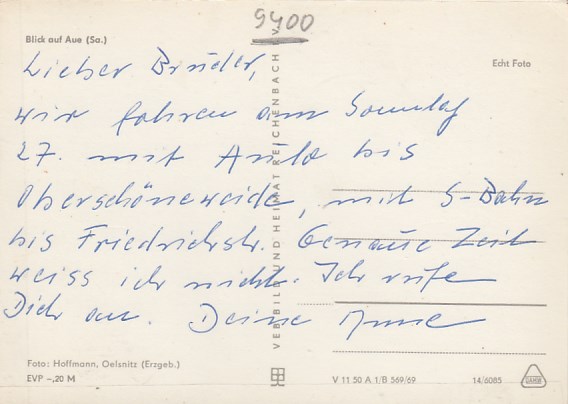 9400
Blick auf Aue (Sa.)
Echt Foto
Lieber Bruder,
wir fahren am Sonntag
27. mit Auto bis
Oberschöneweide, mit S-Bahn
bis Friedrichstr. Genaue Zeit
weiss ich nicht. Ich rufe
Dich an. Deine Anne
VEB BILD UND HEIMAT REICHENBACH V.
Foto: Hoffmann, Oelsnitz (Erzgeb.)
EVP -,20 M
V 11 50 A 1/B 569/69
14/6085